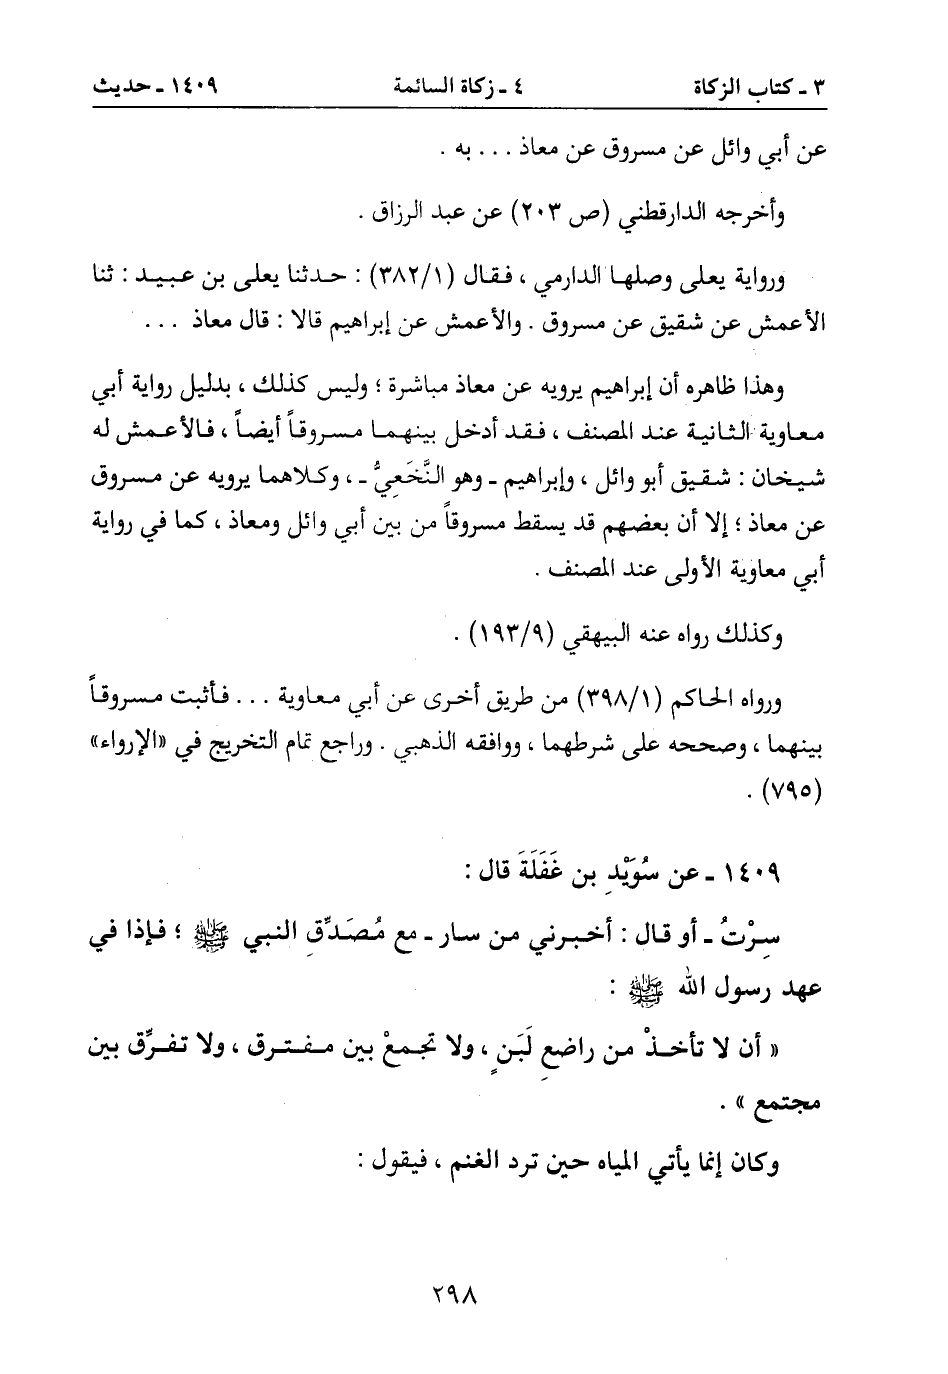 ٣ ـ كتاب الزكاة ٤ ـ زكاة السائمة ١٤٠٩ ـ حديث
عن أبي وائل عن مسروق عن معاذ ... به .
وأخرجه الدارقطني (ص ٢٠٣) عن عبد الرزاق .
ورواية يعلى وصلها الدارمي ، فقال (٣٨٢/١) : حدثنا يعلى بن عبيد : ثنا
الأعمش عن شقيق عن مسروق . والأعمش عن إبراهيم قالا : قال معاذ ...
وهذا ظاهره أن إبراهيم يرويه عن معاذ مباشرة ؛ وليس كذلك ، بدليل رواية أبي
معاوية الثانية عند المصنف ، فقد أدخل بينهما مسروقاً أيضاً ، فالأعمش له
شيخان : شقيق أبو وائل ، وإبراهيم ـ وهو النَّخَعِيُّ ـ ، وكلاهما يرويه عن مسروق
عن معاذ ؛ إلا أن بعضهم قد يسقط مسروقاً من بين أبي وائل ومعاذ ، كما في رواية
أبي معاوية الأولى عند المصنف .
وكذلك رواه عنه البيهقي (١٩٣/٩) .
ورواه الحاكم (٣٩٨/١) من طريق أخرى عن أبي معاوية ... فأثبت مسروقاً
بينهما ، وصححه على شرطهما ، ووافقه الذهبي . وراجع تمام التخريج في «الإرواء»
(٧٩٥) .
١٤٠٩ ـ عن سُوَيْدِ بن غَفَلَةَ قال :
سِرْتُ ـ أو قال : أخبرني من سار ـ مع مُصَدِّقِ النبي ﷺ ؛ فإذا في
عهد رسول الله ﷺ :
« أن لا تأخذْ من راضعِ لَبَنٍ ، ولا تجمعْ بين مفترق ، ولا تفرِّق بين
مجتمع » .
وكان إنما يأتي المياه حين ترد الغنم ، فيقول :
٢٩٨